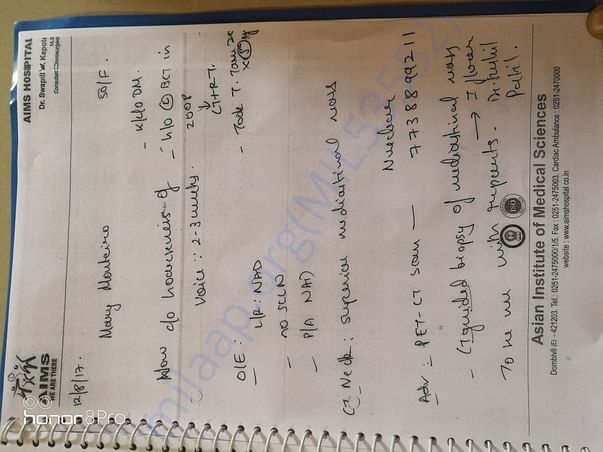 AIMS
WE ARE THERE
AIMS HOSPITAL
Dr. Swapnil M. Kapote
M.S
Consultant Oncosurgeon
12/8/17.
Mary Monteiro
50/F.
Now c/o hoarseness of
voice :: 2-3 weeks.
- K/c/o DM.
- h/o BCT in
2008
↓
CT+RT.
- Took T. Tam 20
x 5 y
- O/E : L/R : NAD
- no SCLN
- P/A NAD
CT Neck : superior mediastinal mass
Adv :- PET-CT scan — Nuclear
7738899211
- CT guided biopsy of mediastinal mass
→ I floor
To see me with reports.
Patil.
Asian Institute of Medical Sciences
Dombivli (E) - 421203. Tel.: 0251-2475000/1/5, Fax : 0251-2475003, Cardiac Ambulance : 0251-2470000
website : www.aimshospital.co.in
milaap.org
honor 8 Pro